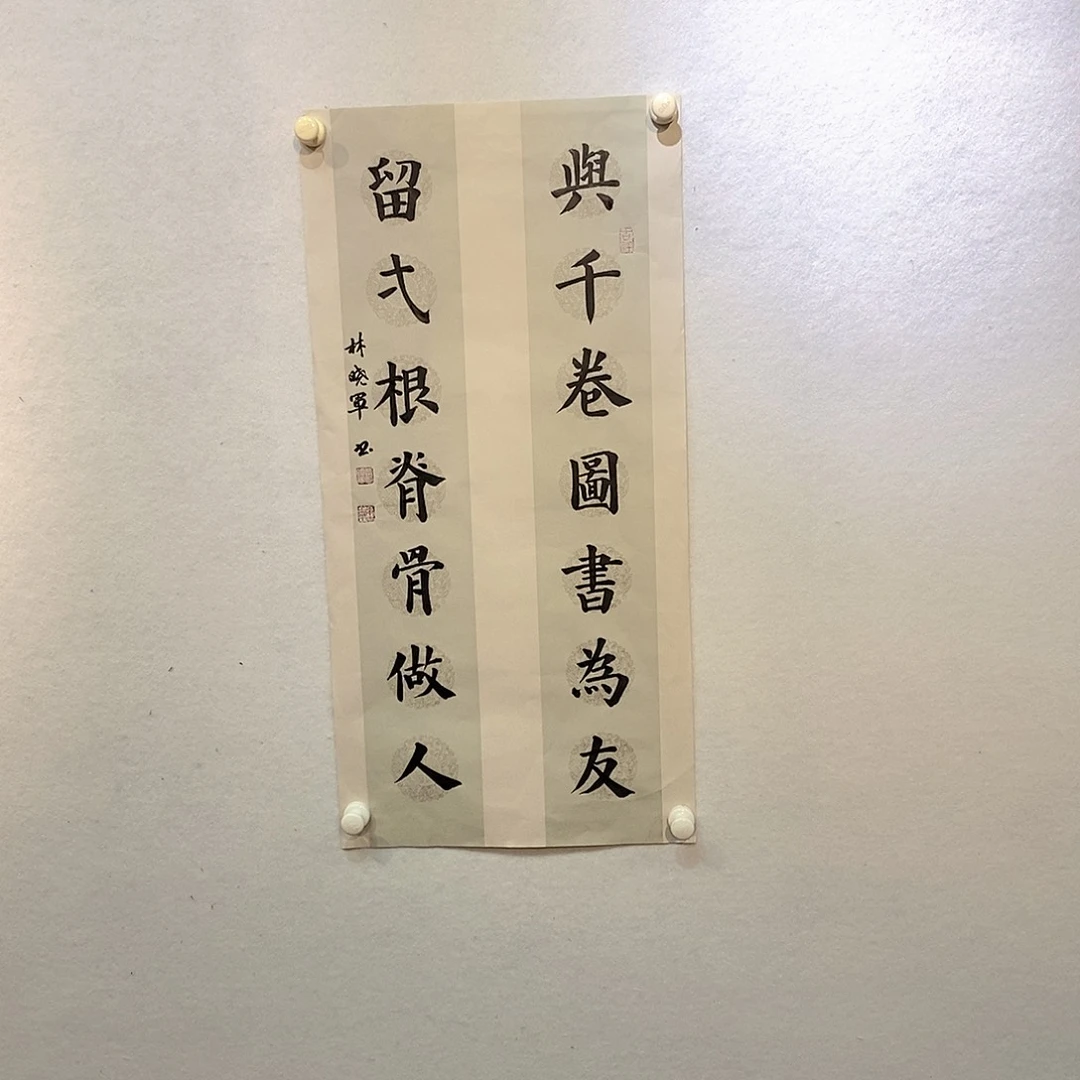 與千卷圖書為友
留弌根脊骨做人
林晓軍书